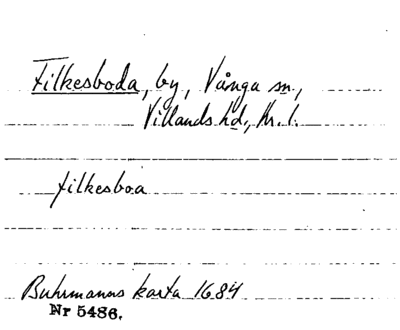 Filkesboda, by, Vånga sn,
Villands hd., Kr. l.
filkesboa
Buhrmanns karta 1684
Nr 5486.